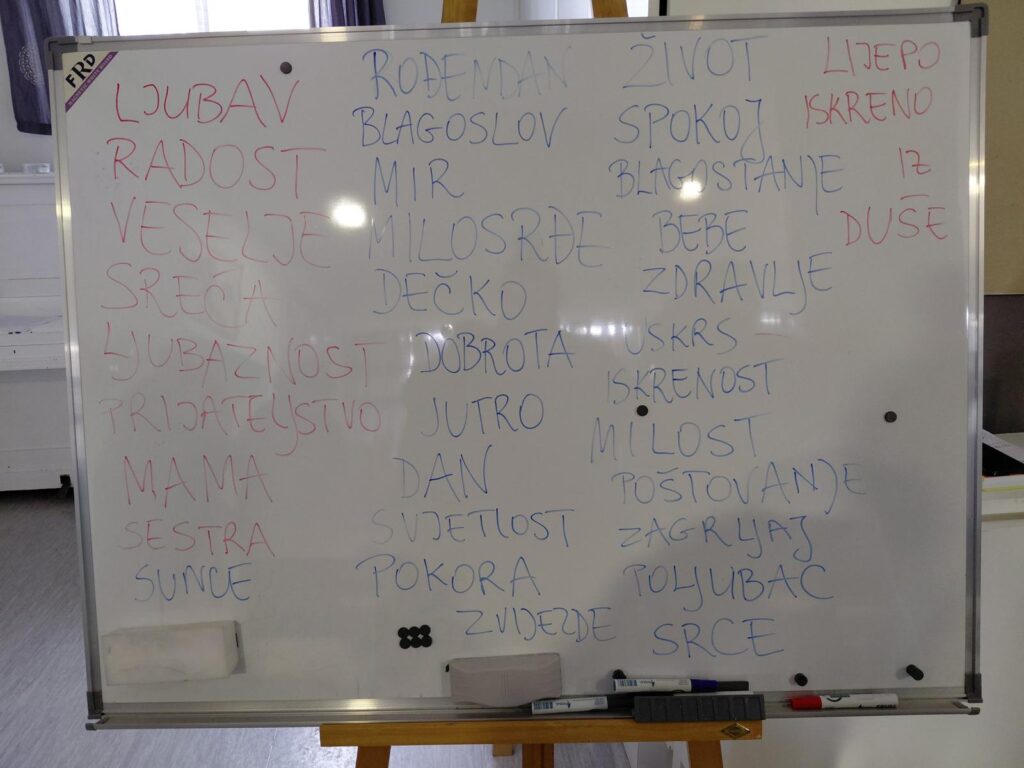 FRD
LJUBAV
RADOST
VESELJE
SREĆA
LJUBAZNOST
PRIJATELJSTVO
MAMA
SESTRA
SUNCE
ROĐENDAN
BLAGOSLOV
MIR
MILOSRĐE
DEČKO
DOBROTA
JUTRO
DAN
SVJETLOST
POKORA
ZVIJEZDE
ŽIVOT
SPOKOJ
BLAGOSTANJE
BEBE
ZDRAVLJE
USKRS
ISKRENOST
MILOST
POŠTOVANJE
ZAGRLJAJ
POLJUBAC
SRCE
LIJEPO
ISKRENO
IZ
DUŠE